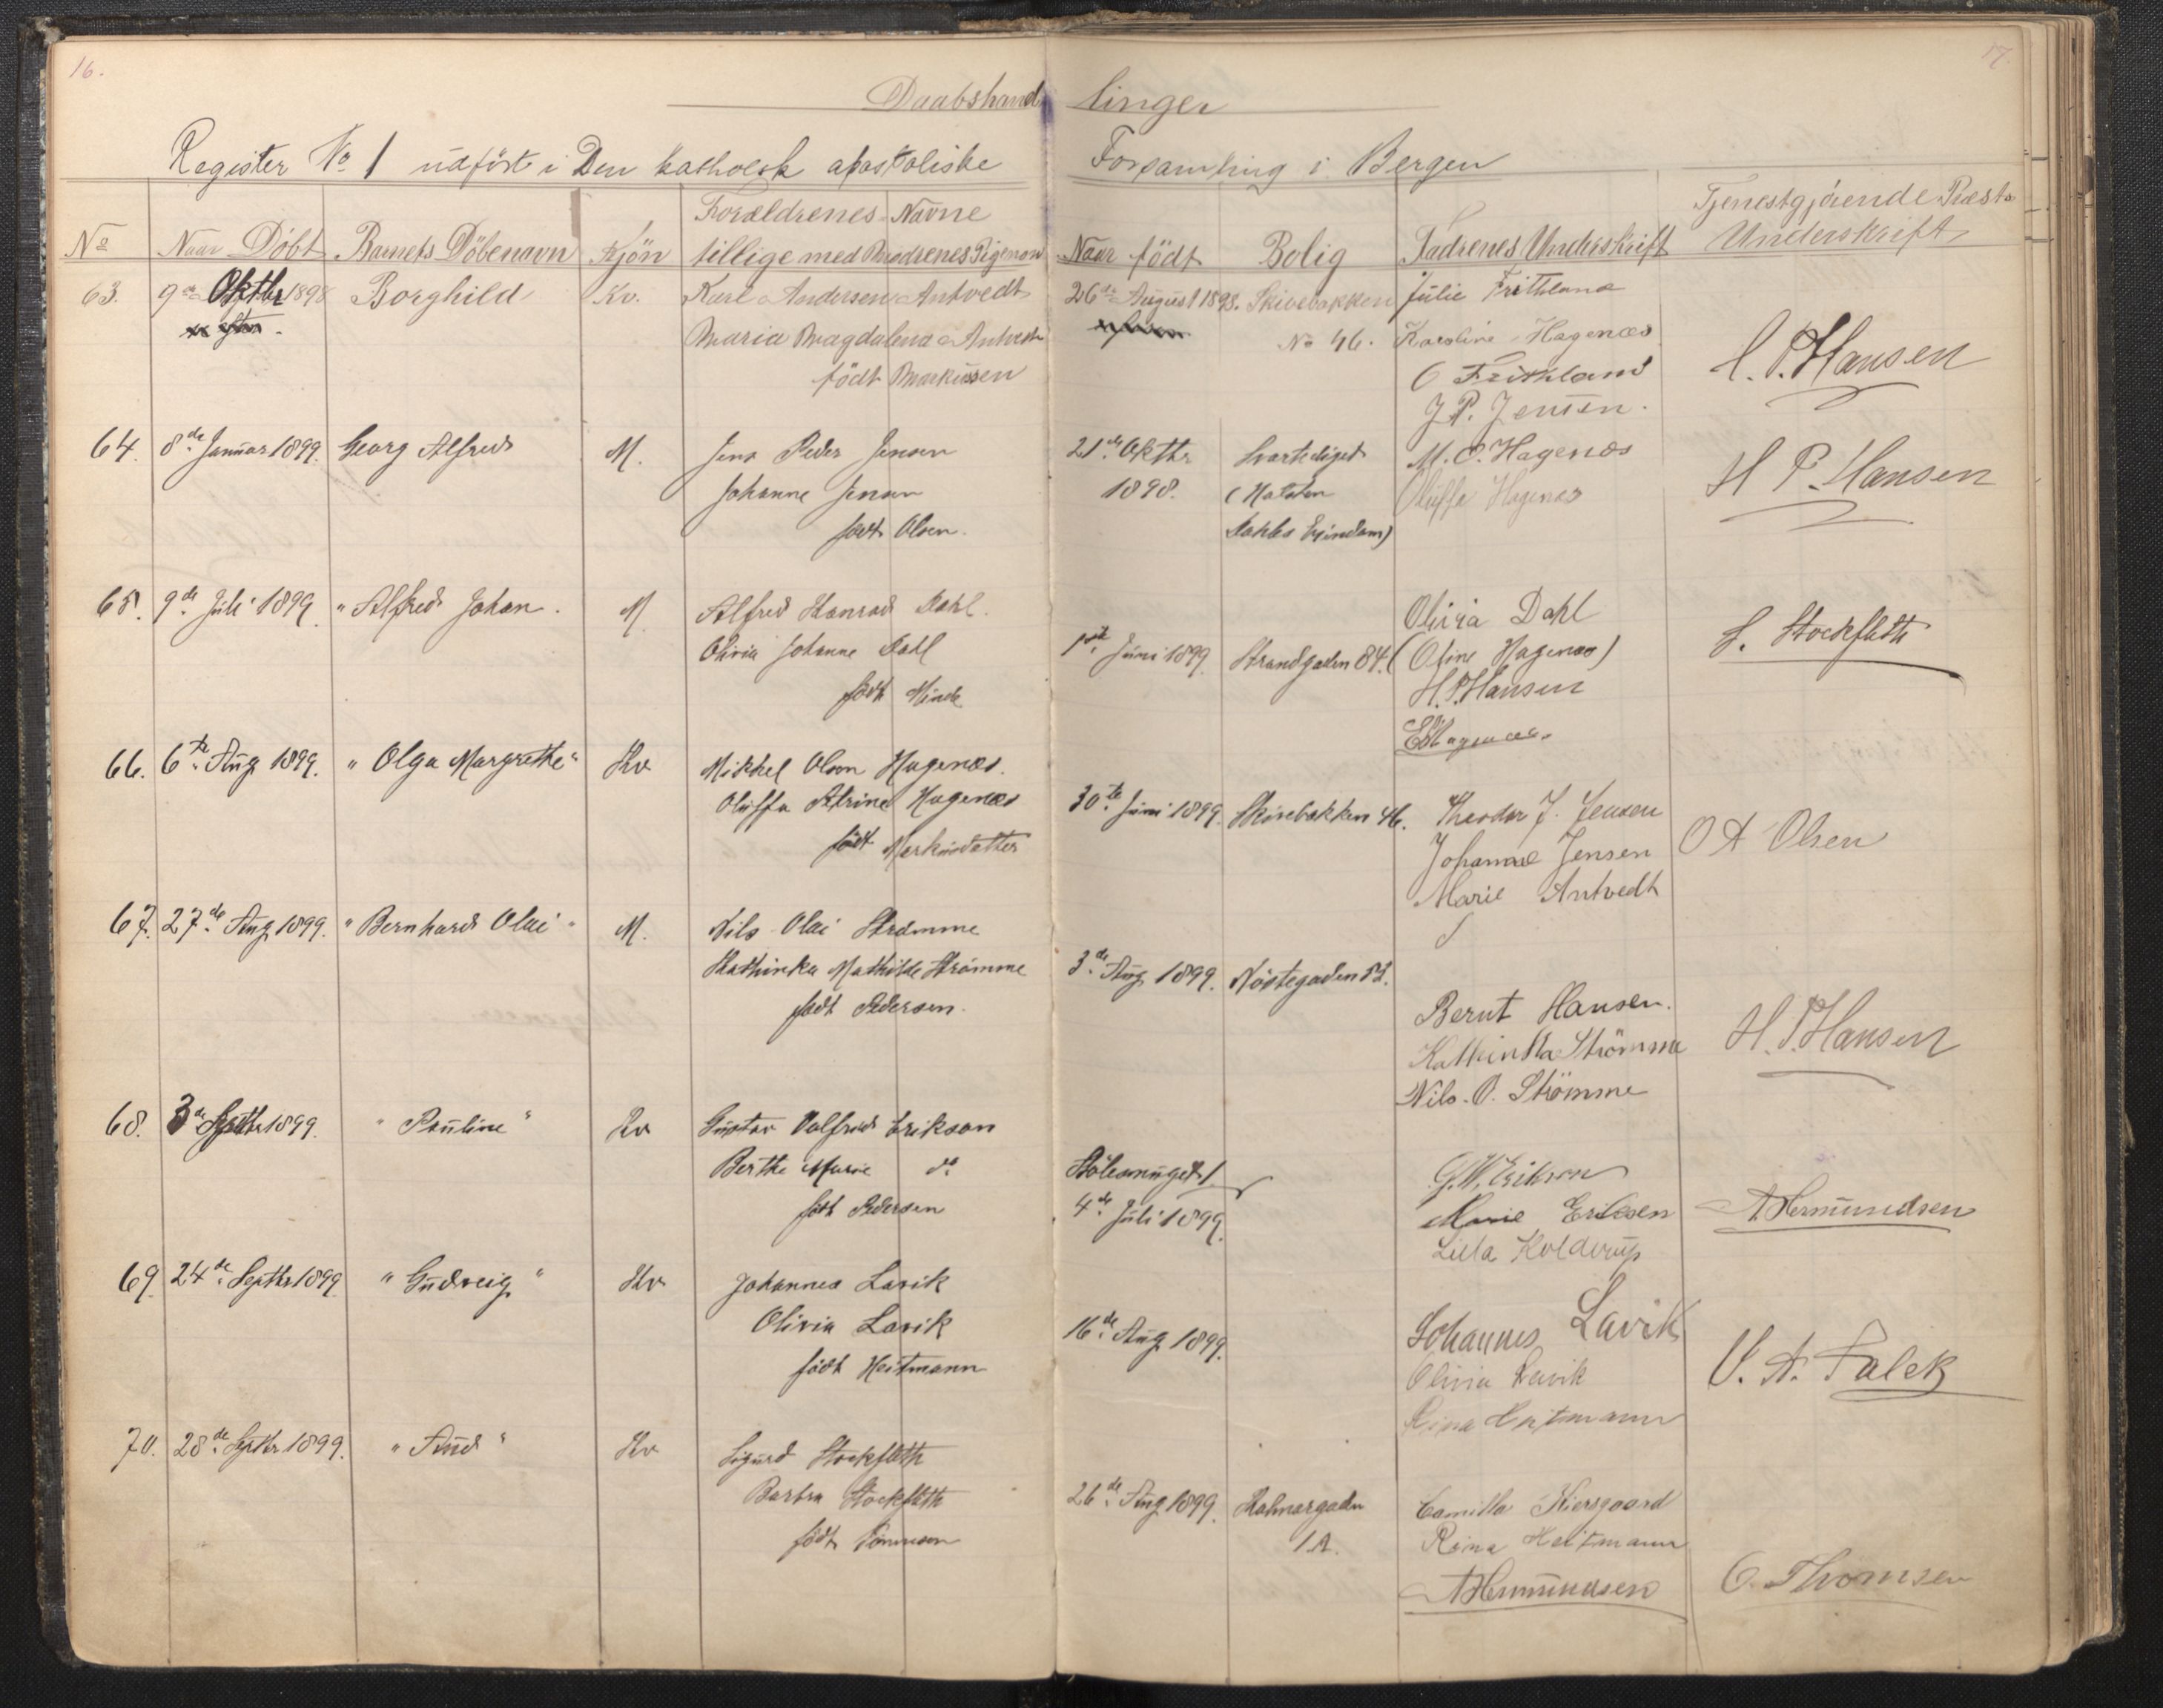 16.
17.
Daabshandlinger
Register No 1 udført i Den katholsk apostoliske Forsamling i Bergen
No Naar Döbt Barnets Döbenavn Kjön Forældrenes Navne tillige med Mødrenes Pigenavn Naar födt Bolig Fadrenes Underskrift Tjenestgjörende Præsts Underskrift
63. 9de Oktbr 1898 Borghild Kv. Karl Andersen Antvedt 26de August 1898. Skivebakken Julie Frithland
Maria Magdalena Antvedt No 46. Karoline Hagenæs
födt Markussen O Frithland H. P. Hansen
J P. Jensen.
64. 8de Januar 1899. Georg Alfred M. Jens Peder Jensen 21de Oktbr Svartediget M. O. Hagenæs H P. Hansen
Johanne Jensen 1898. Oluffa Hagenæs
födt Olsen. Dahls
65. 9de Juli 1899. "Alfred Johan. M. Alfred Konrad Dahl. Olivia Dahl S. Stockfleth
Olivia Johanne Dahl Juni 1899. Strandgaden 84. (Oline Hagenæs)
födt Minde H. P. Hansen
66. 6te Aug 1899. "Olga Margrethe" Kv Mikkel Olsen Hagenæs.
Oluffa Hagenæs 30te Juni 1899. Skivebakken 46. Theodor J. Jensen O A Olsen
födt Markusdatter Johanne Jensen
Marie Antvedt
67. 27de Aug 1899. "Bernhard Olai" M. Nils Olai Strømme
Kathinka Mathilde Strömme 3de Aug 1899. Nöstegaden
födt Pedersen. Bernt Hansen. H. P. Hansen
Kathinka Strömme
Nils. O. Strömme
68. 3de Septbr 1899. "Pauline" Kv Gustav Valfrid Erikson
Berthe Marie do G. W. Erikson
födt Pedersen 4de Juli 1899. Marie Eriksen A Hermundsen
Lilla Kolderup
69. 24de Septbr 1899. "Gudveig" Kv Johannes Lavik
Olivia Lavik 16de Aug 1899. Johannes Lavik V. A. Falck
födt Heitmann Olivia Lavik
Rina Heitmann
70. 28de Septbr 1899. "Aud" Kv Sigurd Stockfleth
Barbra Stockfleth 26de Aug 1899. Kalmargaden Camilla Kiersgaard
födt 1 A. Rina Heitmann
A Hermundsen O. Thomsen